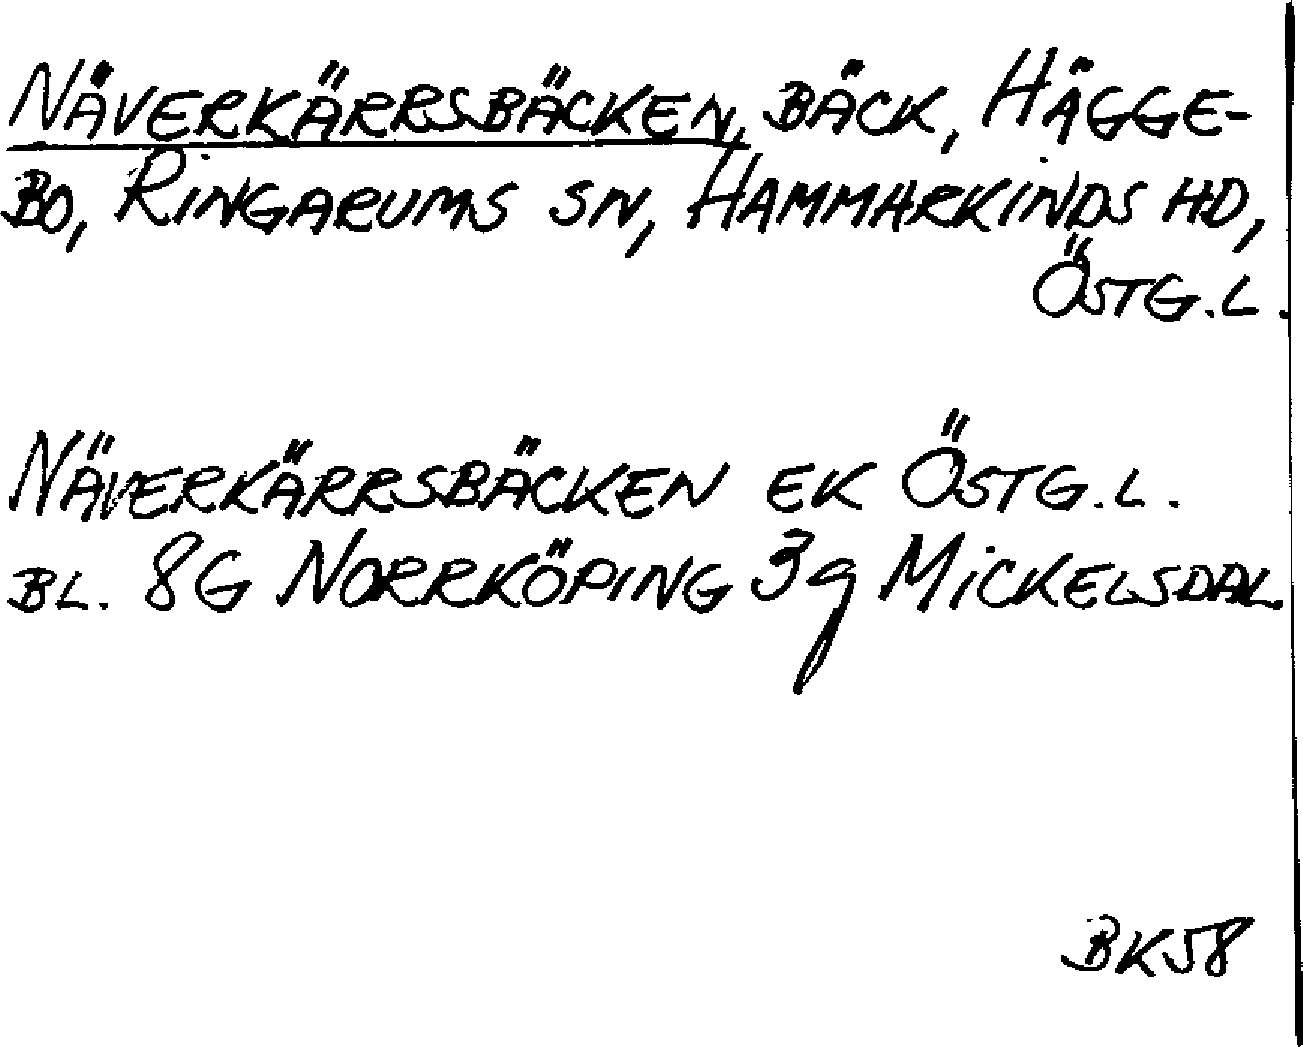 NÄVERKÄRRSBÄCKEN, BÄCK, HÄGGE-
BO, RINGARUMS SN, HAMMARKINDS HD,
ÖSTG.L.
NÄVERKÄRRSBÄCKEN EK ÖSTG.L.
BL. 8G NORRKÖPING 3g MICKELSDAL
BK58